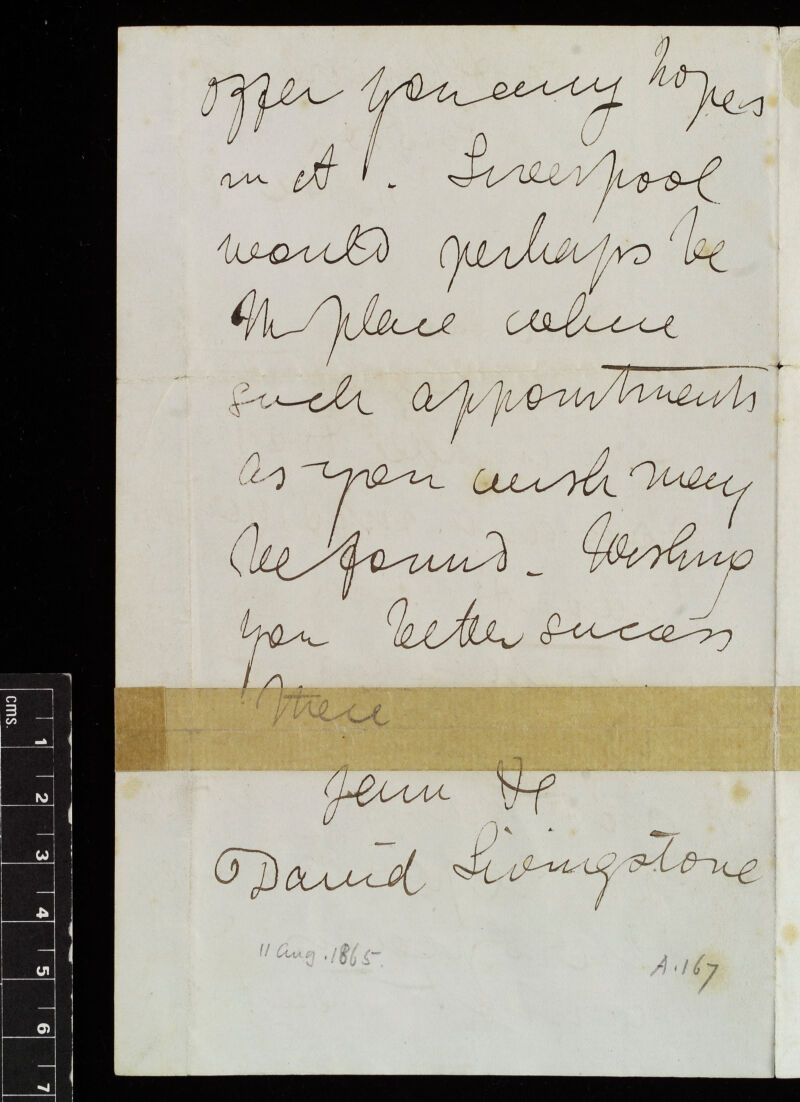 offer you any hopes
in it. Liverpool
would perhaps be
the place where
such appointments
as you wish may
be found - Wishing
you better success
there
I am &c
David Livingstone
11 Aug. 1865.
A.167
cms.
1
2
3
4
5
6
7